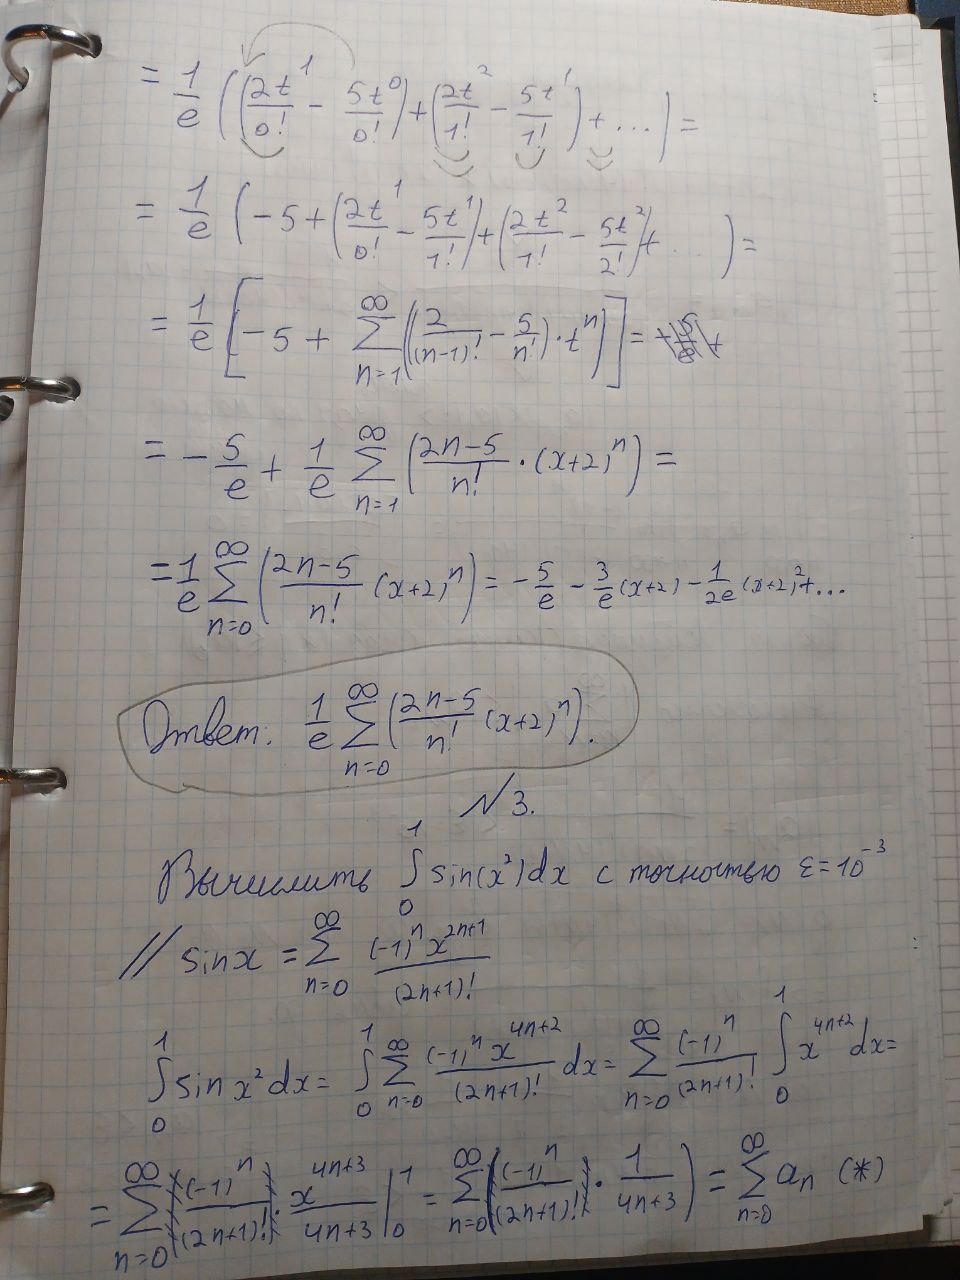 = 1/e ((2t^1/0! − 5t^0/0!) + (2t^2/1! − 5t^1/1!) + ...) =
= 1/e (−5 + (2t^1/0! − 5t^1/1!) + (2t^2/1! − 5t^2/2!) + ...) =
= 1/e [−5 + ∑_{n=1}^{∞} ((2/(n-1)! − 5/n!) · t^n)] =
= − 5/e + 1/e ∑_{n=1}^{∞} ((2n−5)/n! · (x+2)^n) =
= 1/e ∑_{n=0}^{∞} ((2n−5)/n! (x+2)^n) = − 5/e − 3/e (x+2) − 1/2e (x+2)^2 + ...
Ответ: 1/e ∑_{n=0}^{∞} ((2n−5)/n! (x+2)^n).
№3.
Вычислить ∫_0^1 sin(x²)dx с точностью ε=10^{-3}
// sinx = ∑_{n=0}^{∞} (-1)^n x^{2n+1}/(2n+1)!
∫_0^1 sin x² dx = ∫_0^1 ∑_{n=0}^{∞} (-1)^n x^{4n+2}/(2n+1)! dx = ∑_{n=0}^{∞} (-1)^n/(2n+1)! ∫_0^1 x^{4n+2} dx =
= ∑_{n=0}^{∞} (-1)^n/(2n+1)! · x^{4n+3}/4n+3 |_0^1 = ∑_{n=0}^{∞} ((-1)^n/(2n+1)! · 1/4n+3) = ∑_{n=0}^{∞} a_n (*)